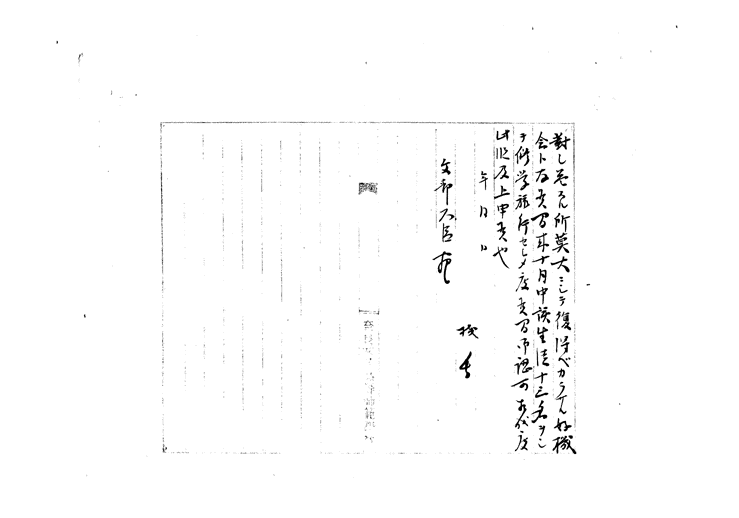 対し益スル所莫大ニシテ復得ベカラザル好機
会ト存候間来十月中該生徒十三名ヲシ
テ修学旅行セシメ度候間御認可相成度
此段及上申候也
年 月 日
校長
文部大臣宛